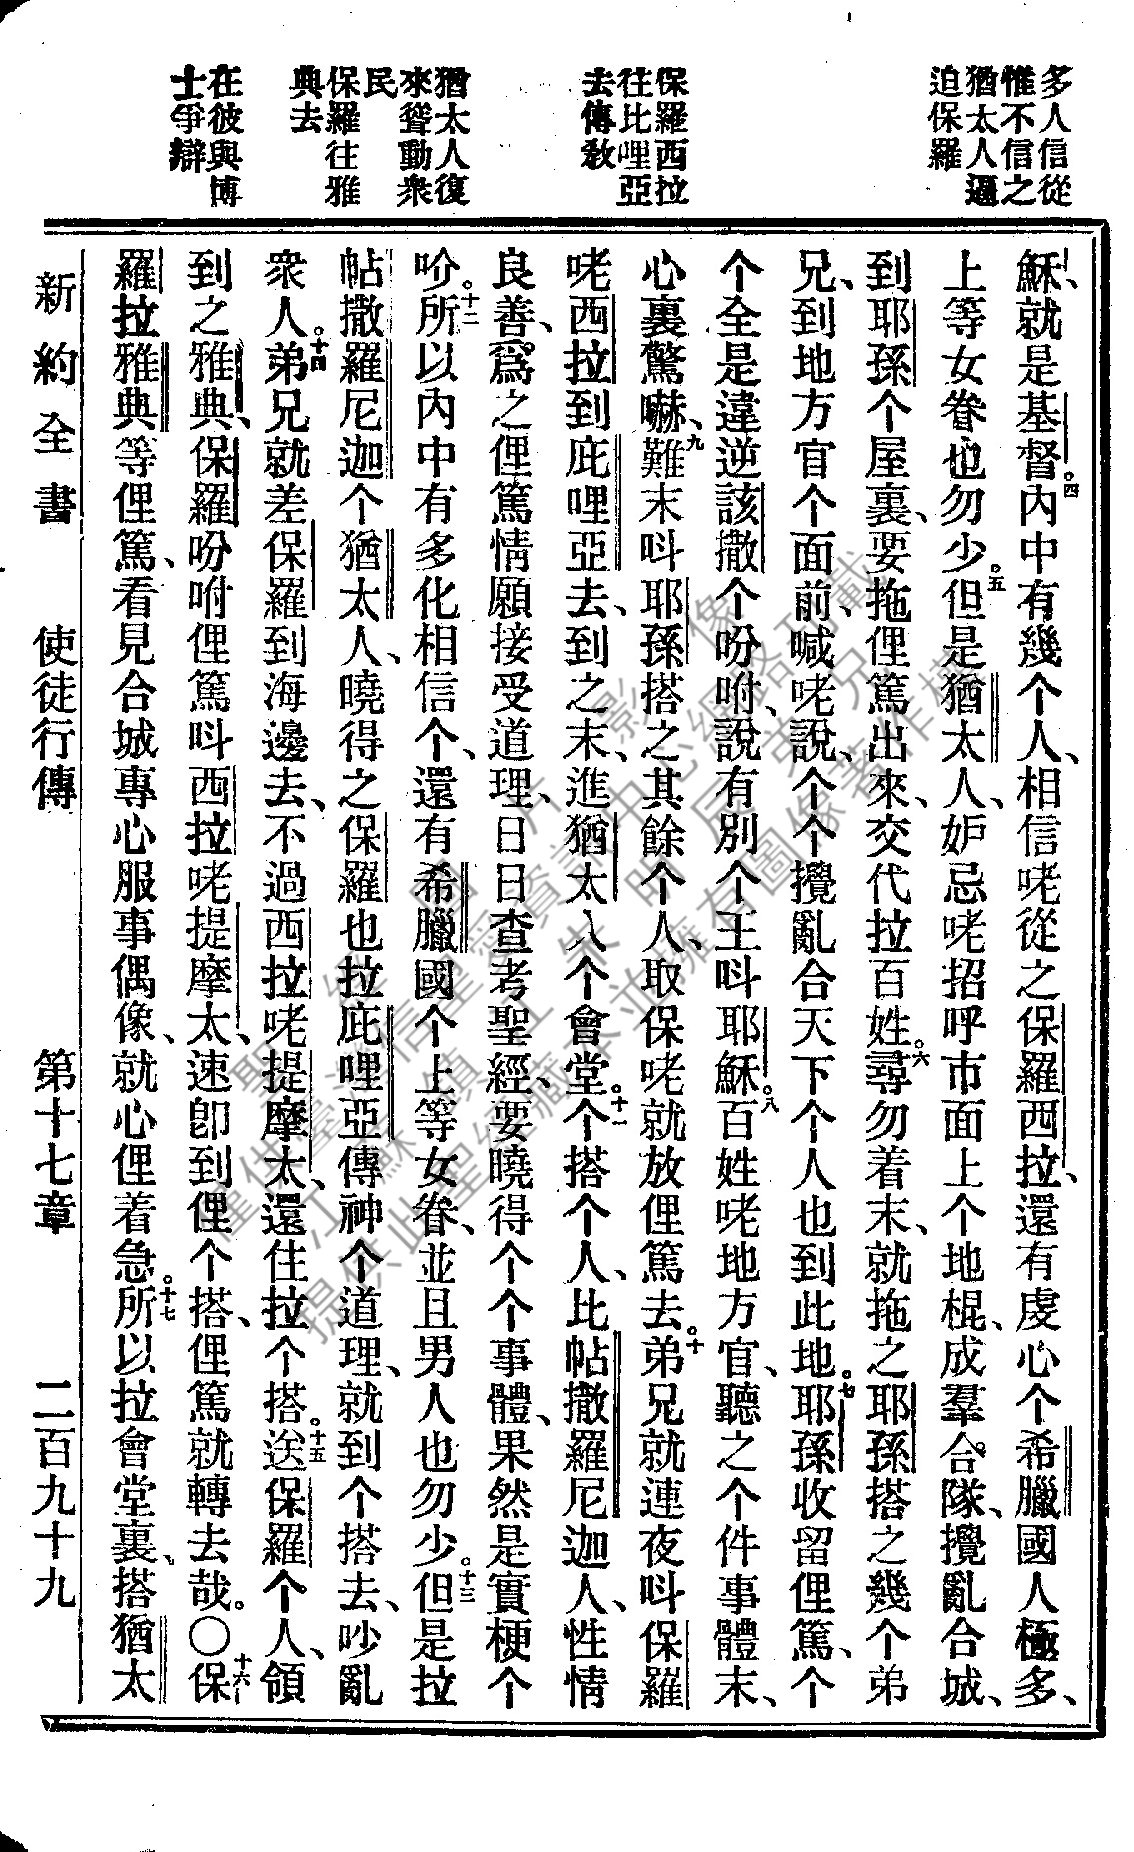 多人信從
惟不信之
猶太人逼
迫保羅
保羅西拉
往比哩亞
去傳教
猶太人復
來聳動衆
民
保羅往雅
典去
在彼與博
士爭辯
穌、就是基督。四內中有幾个人、相信咾從之保羅西拉、還有虔心个希臘國人極多、
上等女眷也勿少。五但是猶太人、妒忌咾招呼市面上个地棍、成羣合隊、攪亂合城、
到耶孫个屋裏、要拖俚篤出來、交代拉百姓。六尋勿着末、就拖之耶孫搭之幾个弟
兄、到地方官个面前、喊咾說、个个攪亂合天下个人也到此地。七耶孫收留俚篤、个
个全是違逆該撒个吩咐、說有別个王呌耶穌。八百姓咾地方官、聽之个件事體末、
心裏驚嚇、九難末呌耶孫搭之其餘个人、取保咾就放俚篤去。十弟兄就連夜呌保羅
咾西拉到庇哩亞去、到之末、進猶太人个會堂。十一个搭个人、比帖撒羅尼迦人、性情
良善、爲之俚篤情願接受道理、日日查考聖經、要曉得个个事體、果然是實梗个
吤。十二所以內中有多化相信个、還有希臘國个上等女眷、並且男人也勿少。十三但是拉
帖撒羅尼迦个猶太人、曉得之保羅也拉庇哩亞傳神个道理、就到个搭去、吵亂
衆人。十四弟兄就差保羅到海邊去、不過西拉咾提摩太、還住拉个搭。十五送保羅个人、領
到之雅典、保羅吩咐俚篤呌西拉咾提摩太、速卽到俚个搭、俚篤就轉去哉。〇十六保
羅拉雅典等俚篤、看見合城專心服事偶像、就心俚着急。十七所以拉會堂裏、搭猶太
新約全書 使徒行傳 第十七章 二百九十九